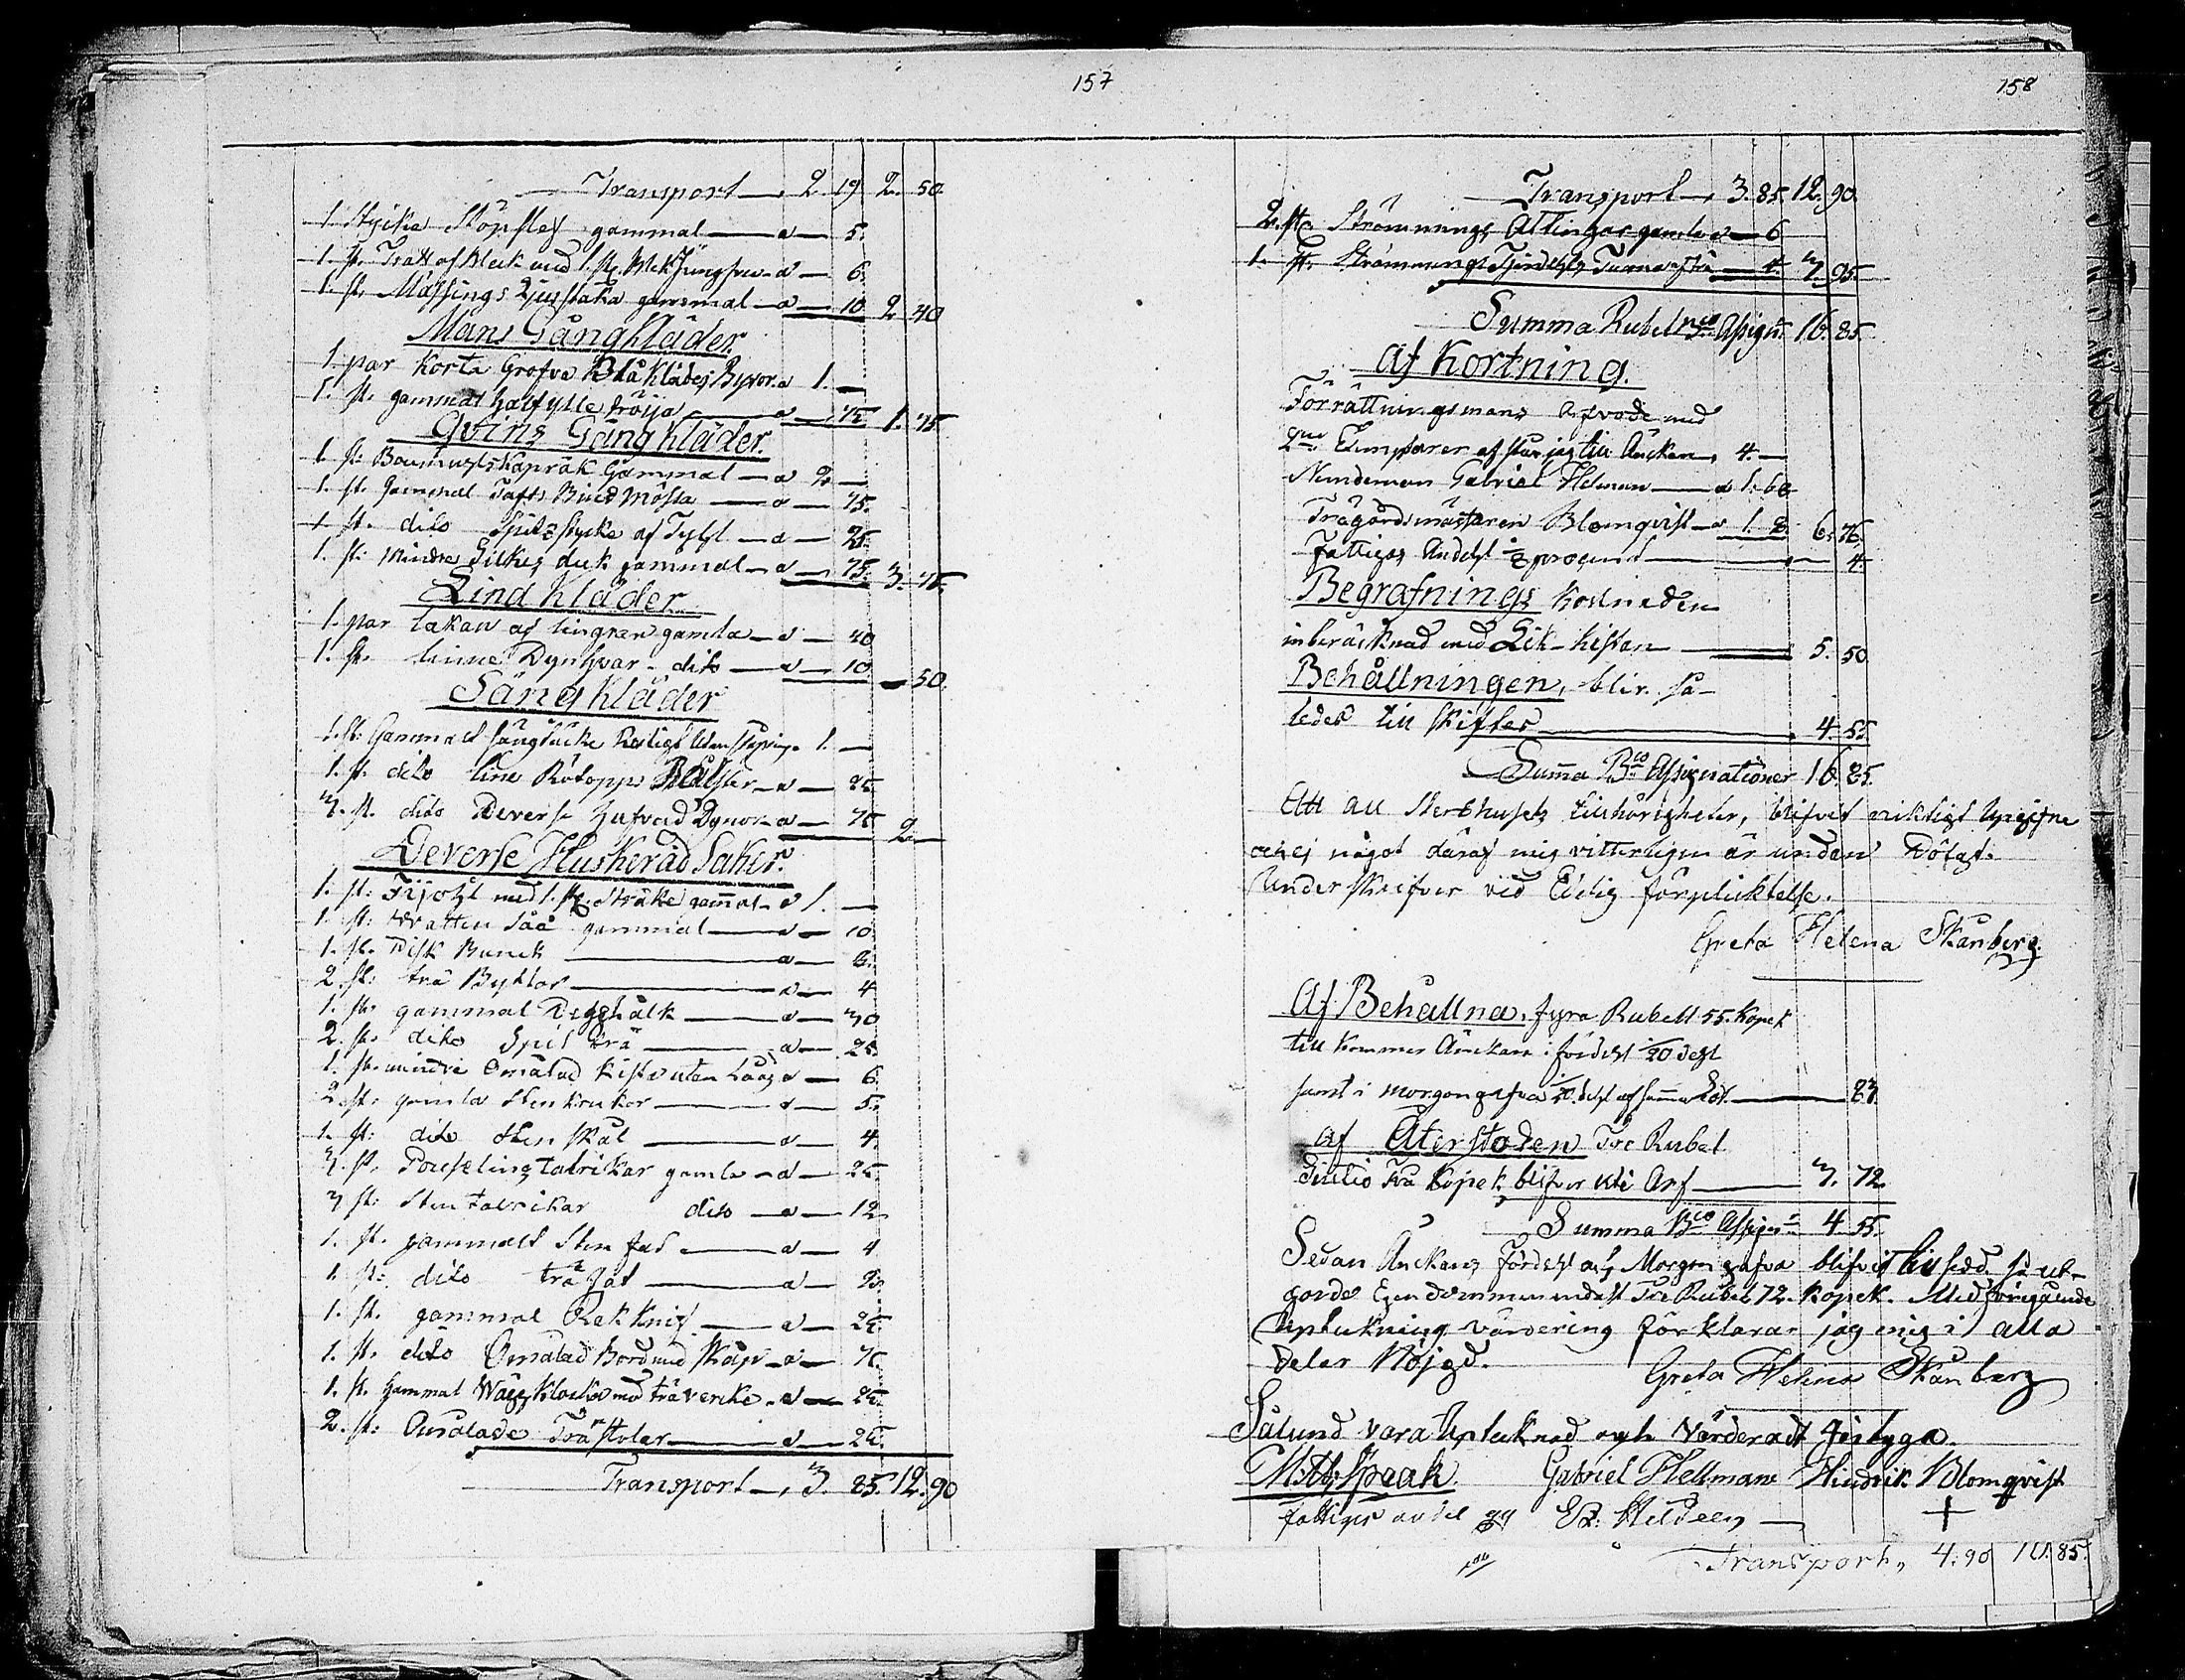 157
Transport 2. 19 2. 50
1. Stycke Stöpslef gammal a 5.
1. st. Tratt af Bleck med 1. st. a 6.
1. st. Mässings Ljusstaka gammal a 10 2 40
Mans Gångkläder
1. par Korta Grofva Blå Klädes Byxor a 1. —
1. st. gammal halfylle tröija a 75 1. 75
Qvins Gång Kläder.
1. st. Kapråk Gammal a 2 —
1. st. Gammal Tafts Bind Mössa a 75.
1. st. dito Spitz stycke af Tyll a 25.
1. st. Mindre Silkes duk gammal a 75. 3. 75.
Lind Kläder
1. par Lakan af lingran gamla a 40
1. st. linne Dynhvar dito a 10 — 50.
Säng Kläder
1. st. Gammalt sängtäcke 1. —
1. st. dito line a 25.
3. st. dito Deverse Hufvud Dynor a 75 2 —
Deverse Huskeråd Saker.
1. st. med 1. st. gamal a 1. —
1. st. Watten Såå gammal a 10.
1. st. Disk Bunck a 2.
2. st. trä Byttor a 4
1. st. gammal a 30
2. st. dito trä a 25.
1. st. mindre Omålad Kista utan Låås a 6.
2. st. gamla Stenkrukor a 5.
1. st. dito Stenskål a 4.
3. st. Porslins talrikar gamla a 25.
3 st. Sten talrikar dito a 12
1. st. gammalt Sten fad a 4
1. st. dito trä fat a
1. st. gammal Rakknif a 25.
1. st. dito Omålad Bord med Skåp a 75.
1. st. Gammal Wägg Klocka med trävercke a 25.
2. st. Omålade Trästolar a 25.
Transport 3. 85. 12. 90
158
Transport 3. 85. 12. 90.
2. st. Strömmings Åttingar gamla a 6
1. st. Strömmings 4. 3. 95.
Summa Rubel Bco Assign. 16. 85.
Af Kortning.
Förrättningsmans Arfvode med
2ne Exemplarer af till Änckan 4. —
Nämdeman Gabriel Helman a 1. 60
Trägårdsmästaren Blomqvist a 1. 6. 76.
Fattigas Andehl procent 4.
Begrafnings Kostnaden
inberäcknad med Lik-kistan 5. 50
Behållningen, blir så-
ledes till skiftes 4. 55.
Suma Bco Assignationer 16. 85.
Att all Sterbhusets tillhörigheter, blifvit riktigt Upgifne
och ej något däraf mig vitterligen är undan Dölgt.
Underskrifver vid Edelig förplicktelse.
Greta Helena Skanberg.
Af Behållna, fyra Rubell 55. Kopek
till kommer Änckan i fördehl 1/20 dehl
samt i morgongåfva 1/20. dehl af samma 83
Af Återstoden Tre Rubel
Siutio Två Kopek blifver till Arf 3. 72.
Summa Bco Assign. 4. 55.
Sedan Änckans Fördehl och Morgongåfva blifvit så ut-
gorde Egendommen endast Tre Rubel 72. Kopek. Med föregående
Upteckning värdering förklarar jag mig i alla
delar Nöjgd. Greta Helena Skanberg
Sålund vara Uptecknad och Värderadt
Spaak Gabriel Hellman Hindrik Blomqvist
fattigas andel
Transport, 4. 90 16. 85.